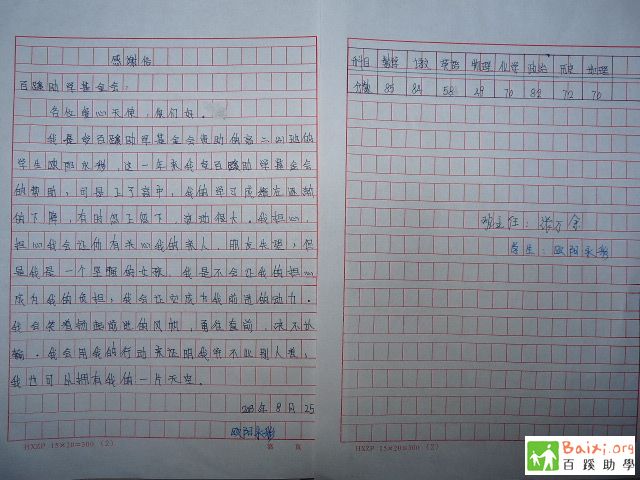 感谢信
百蹊助学基金会:
各位爱心天使,你们好。
我是受百蹊助学基金会资助的高二四班的
学生欧阳永彩,这一年来我受百蹊助学基金会
的帮助,可是上了高中,我的学习成绩充满
的下降,有时忽上忽下,波动很大。我担心,
担心我会让你有关心我的亲人,朋友失望,但
是我是一个坚强的女孩。我是不会让我的担心
成为我的负担,我会让它成为我前进的动力。
我会笑着扬起前进的风帆,勇往直前,决不认
输。我会用我的行动来证明我并不比别人差,
我也可以拥有我的一片天空。
年8月25
欧阳永彩
HXZP 15×20=300 (2)
第 页
科目 数学 语数 英语 物理 化学 政治 历史 地理
分数 85 84 58 49 70 82 72 70
班主任:张万金
学生:欧阳永彩
HXZP 15×20=300 (2)
Baixi.org
百蹊助學